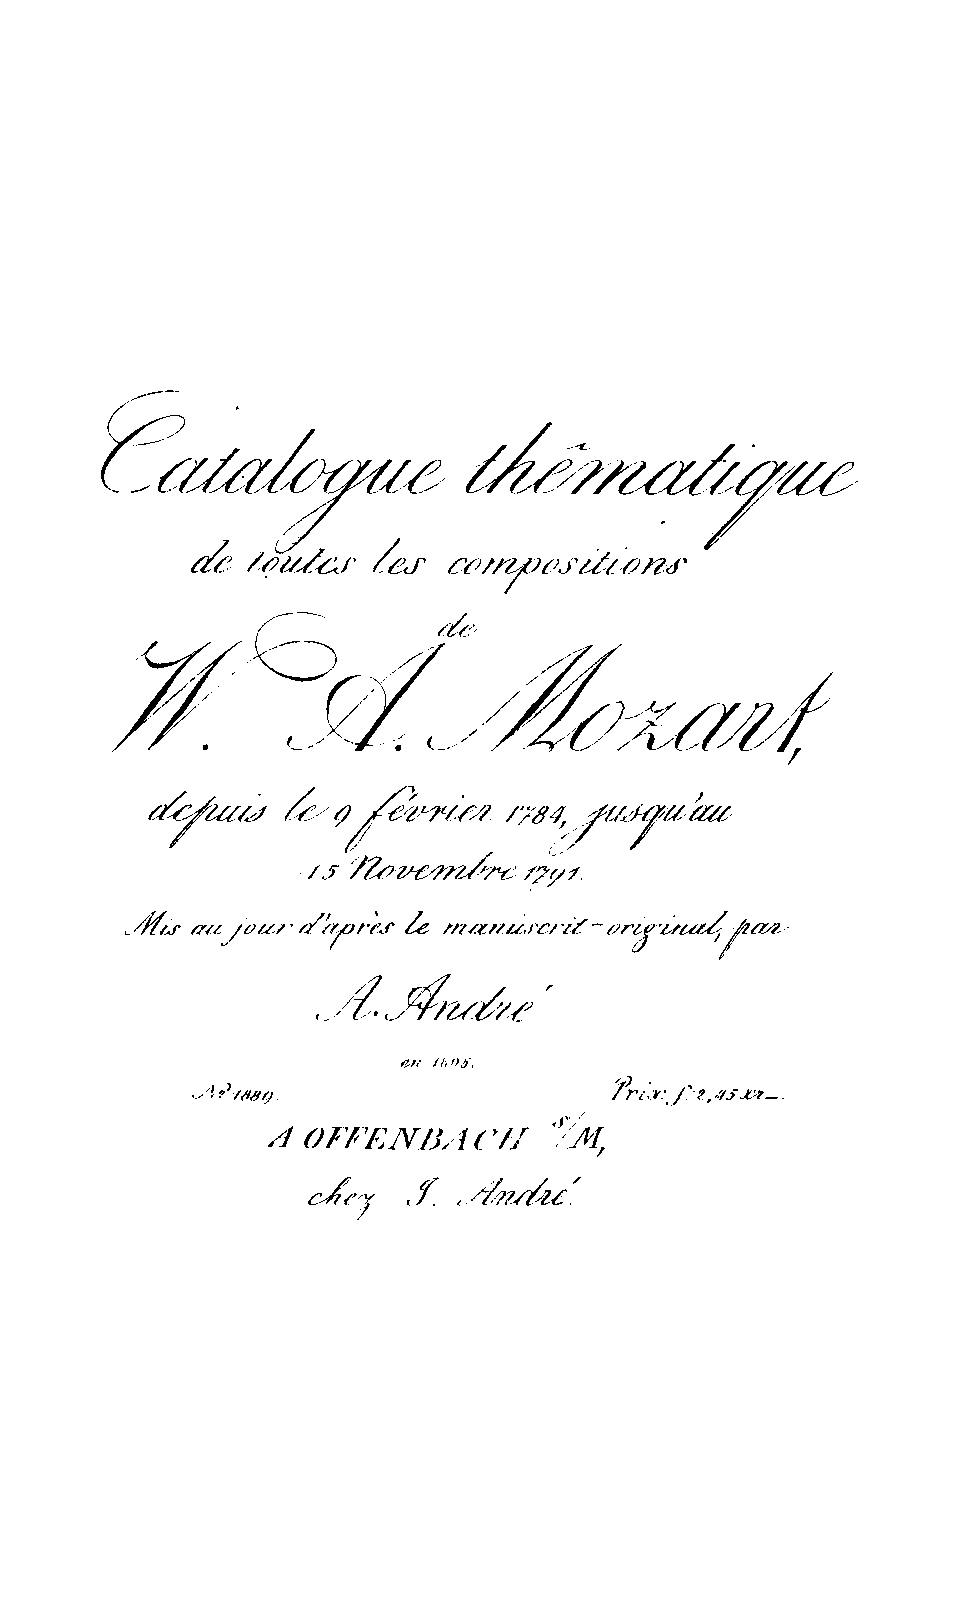 Catalogue thêmatique
de toutes les compositions
de
W. A. Mozart,
depuis le 9 février 1784, jusqu'au
15 Novembre 1791.
Mis au jour d'après le manuscrit-original, par
A. André
en
No 1889. Prix: f: 2, 45 xr_.
A OFFENBACH s/M,
chez J. André.